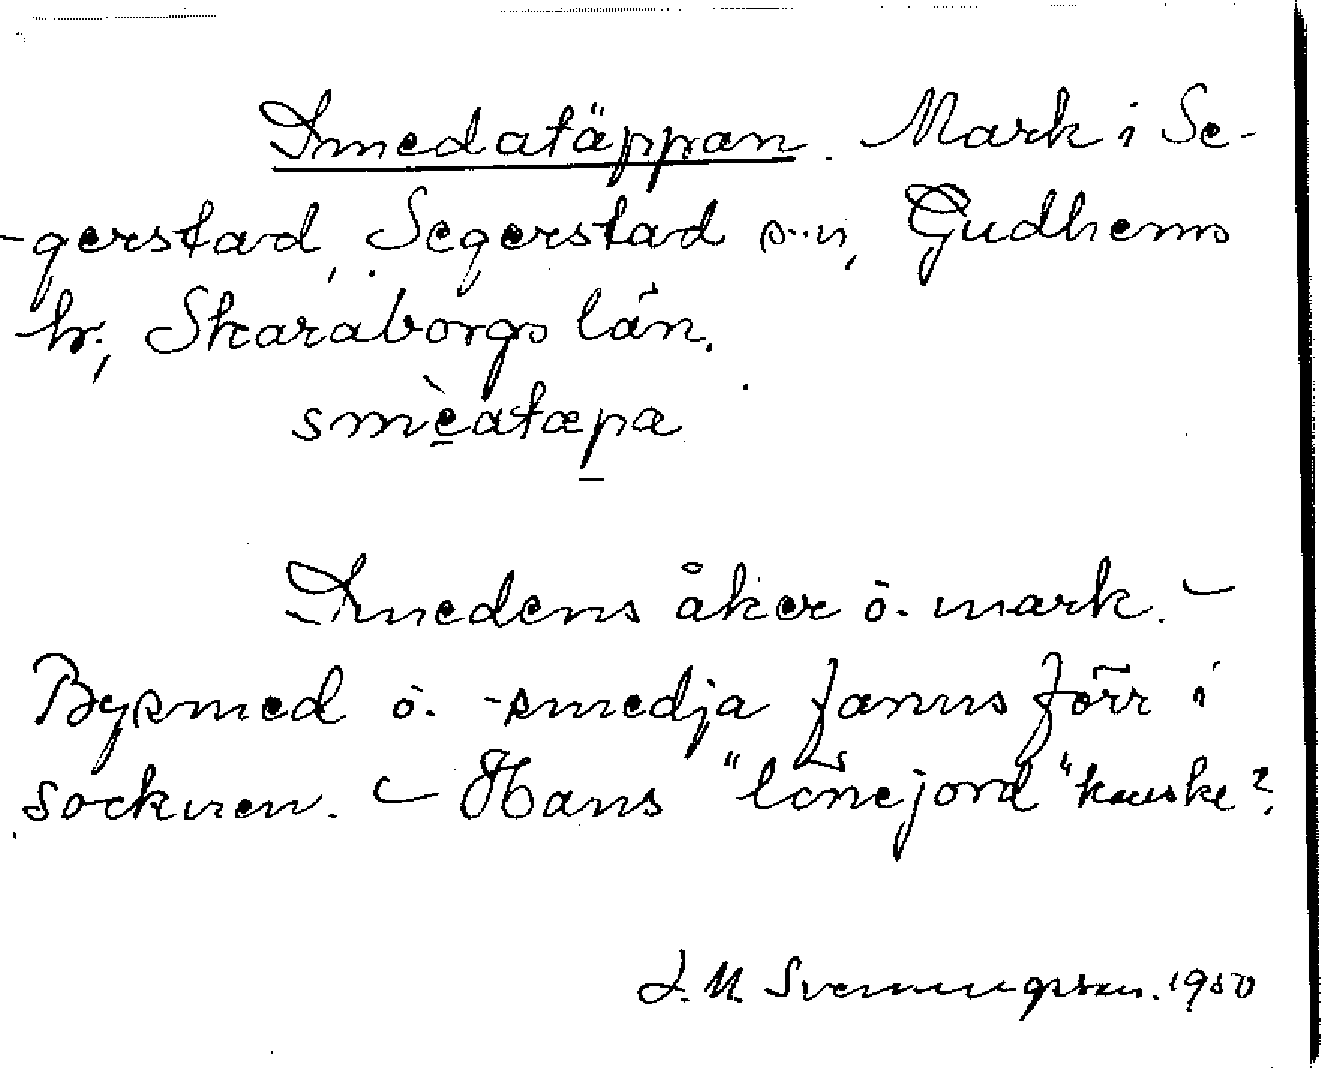 Smedatäppan. Mark i Se-
-gerstad, Segerstad s-n, Gudhems
hr., Skaraborgs län.
smèatæpa
Smedens åker o. mark. –
Bysmed o. -smedja fanns förr i
socknen. – Hans "lönejord" kanske?
J. M. Svenningsson. 1950